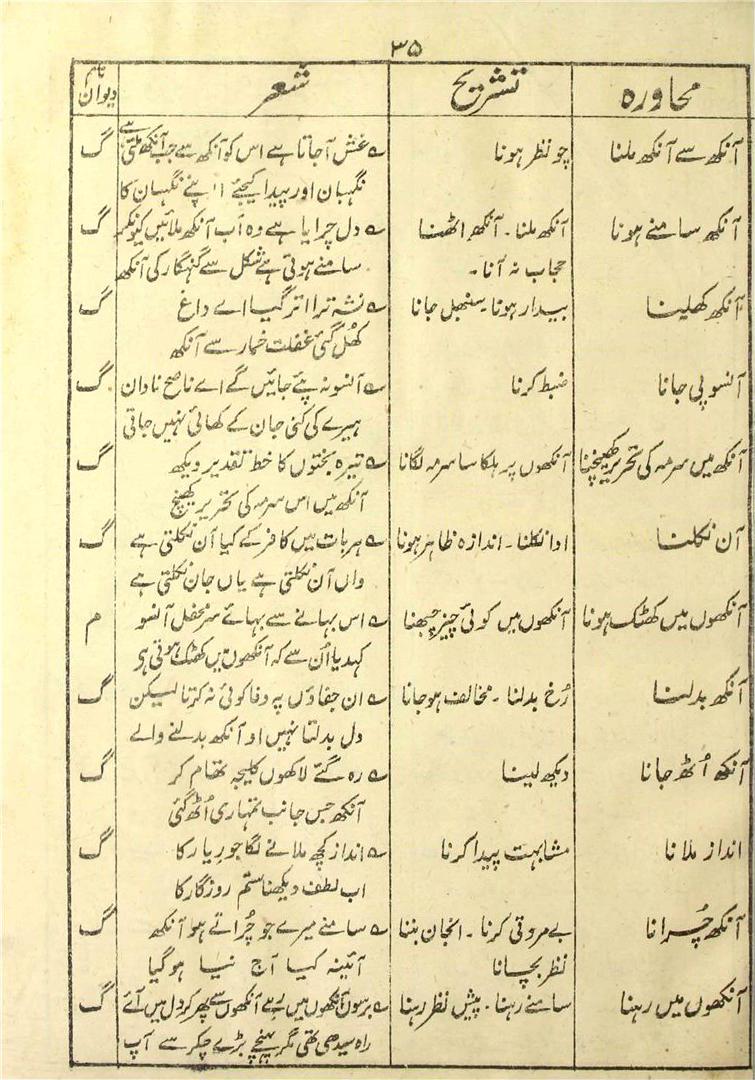 ۳۵
محاورہ تشریح شعر نام دیوان
آنکھ سے آنکھ ملنا چو نظر ہونا ؎ غش آجاتا ہے اس کو آنکھ سے جب آنکھ ملتی ہے گ
نگہبان اور پیدا کیجئے اپنے نگہبان کا
آنکھ سامنے ہونا آنکھ ملنا۔ آنکھ اٹھنا ؎ دل چرایا ہے وہ اب آنکھ ملائیں کیونکر گ
حجاب نہ آنا۔ سامنے ہوتی ہے شکل سے گنہگار کی آنکھ
آنکھ کھلنا بیدار ہونا۔ سنبھل جانا ؎ نشہ ترا اتر گیا اے داغ گ
کھُل گئی غفلت خمار سے آنکھ
آنسو پی جانا ضبط کرنا ؎ آنسو نہ پئے جائیں گے اے ناصح نادان گ
ہیرے کی کنی جان کے کھائی نہیں جاتی
آنکھ میں سرمہ کی تحریر کھینچنا آنکھوں پر ہلکا سا سرمہ لگانا ؎ تیرہ بختوں کا خط تقدیر دیکھ گ
آنکھ میں اس سرمہ کی تحریر کھینچ
آن نکلنا ادا نکلنا۔ اندازہ ظاہر ہونا ؎ ہر بات میں کافر کے کیا آن نکلتی ہے گ
واں آن نکلتی ہے یاں جان نکلتی ہے
آنکھوں میں کھٹک ہونا آنکھوں میں کوئی چیز چبھنا ؎ اس بہانے سے بہائے سر محفل آنسو م
کہدیا اُن سے کہ آنکھوں میں کھٹک ہوتی ہی
آنکھ بدلنا رُخ بدلنا۔ مخالف ہو جانا ؎ ان جفاؤں پہ وفا کوئی نہ کرتا لیکن گ
دل بدلتا نہیں او آنکھ بدلنے والے
آنکھ اُٹھ جانا دیکھ لینا ؎ رہ گئے لاکھوں کلیجہ تھام کر گ
آنکھ جس جانب تمہاری اُٹھ گئی
انداز ملانا مشابہت پیدا کرنا ؎ انداز کچھ ملانے لگا جورِ یار کا گ
اب لطف دیکھنا ستم روزگار کا
آنکھ چُرانا بے مروتی کرنا۔ انجان بننا ؎ سامنے میرے جو چُراتے ہو آنکھ گ
نظر بچانا آئینہ کیا آج نیا ہوگیا
آنکھوں میں رہنا سامنے رہنا۔ پیش نظر رہنا ؎ برسوں آنکھوں میں رہے آنکھوں سے پھر کر دل میں آئے گ
راہ سیدھی تھی مگر پہنچے بڑے چکر سے آپ